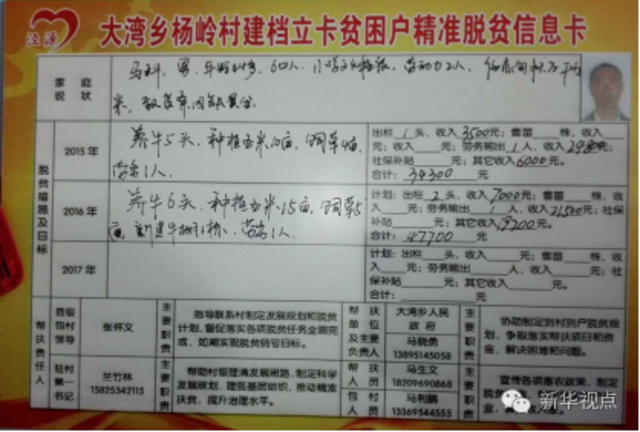 泾源
大湾乡杨岭村建档立卡贫困户精准脱贫信息卡
家庭
现状
马科，男，6口人，小学文化程度，劳动力2人，
米，
脱贫措施及目标
2015年
养牛5头，种植玉米10亩，饲草4亩，
劳务1人。
出栏 1 头，收入 3500 元；售苗 株，收入
元；收入 元；劳务输出 1 人，收入 元；
社保补贴 元；其它收入 6000 元。
合计： 34300 元
2016年
养牛6头，种植玉米15亩，饲草5
亩，新建牛棚1栋，劳务1人。
计划：出栏 2 头，收入 7000 元；售苗
株，收入 元；劳务输出 1 人，收入 21500 元；社保
补贴 元；其它收入 元
合计： 47700 元
2017年
计划：出栏 头，收入 元；售苗 株，收入
元；劳务输出 人，收入 元；社保补贴
元；其它收入 元
合计： 元
帮扶责任人
县级包村领导
张怀文
主要职责
指导联系村制定发展规划和脱贫
计划，督促落实各项脱贫任务全面完
成，如期实现脱贫销号目标。
帮扶单位及主要负责人
大湾乡人民
政府
马晓勇
13895145058
主要职责
协助制定到村到户脱贫规
划，争取落实帮扶项目和资
金，解决困难和问题。
驻村第一书记
兰竹林
15825342115
主要职责
帮助村级理清发展思路，制定科学
发展规划，建强基层组织，推动精准
扶贫，提升治理水平。
帮扶人员
马生文
18209690868
包村人员
马利鹏
13369544555
主要职责
宣传各项惠农政策，制定
新华视点